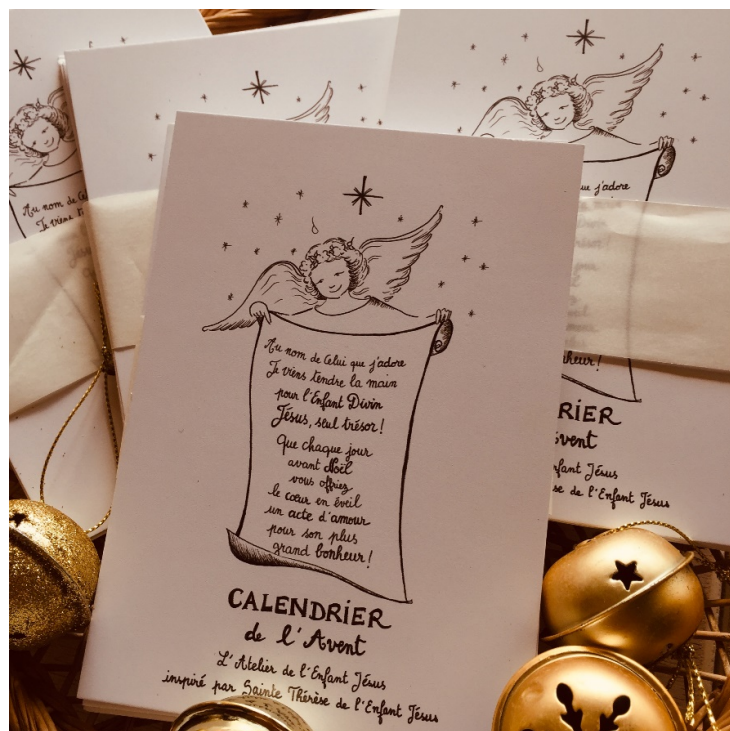 Au nom de Celui que j'adore
Je viens tendre la main
pour l'Enfant Divin
Jésus, seul trésor !
Que chaque jour
avant Noël
vous offriez
le cœur en éveil
un acte d'amour
pour son plus
grand bonheur !
CALENDRIER
de l'Avent
L'Atelier de l'Enfant Jésus
inspiré par Sainte Thérèse de l'Enfant Jésus
Au nom de Celui
Je viens t
que j'adore
nheur !
RIER
vent
nfant Jésus
se de l'Enfant Jésus